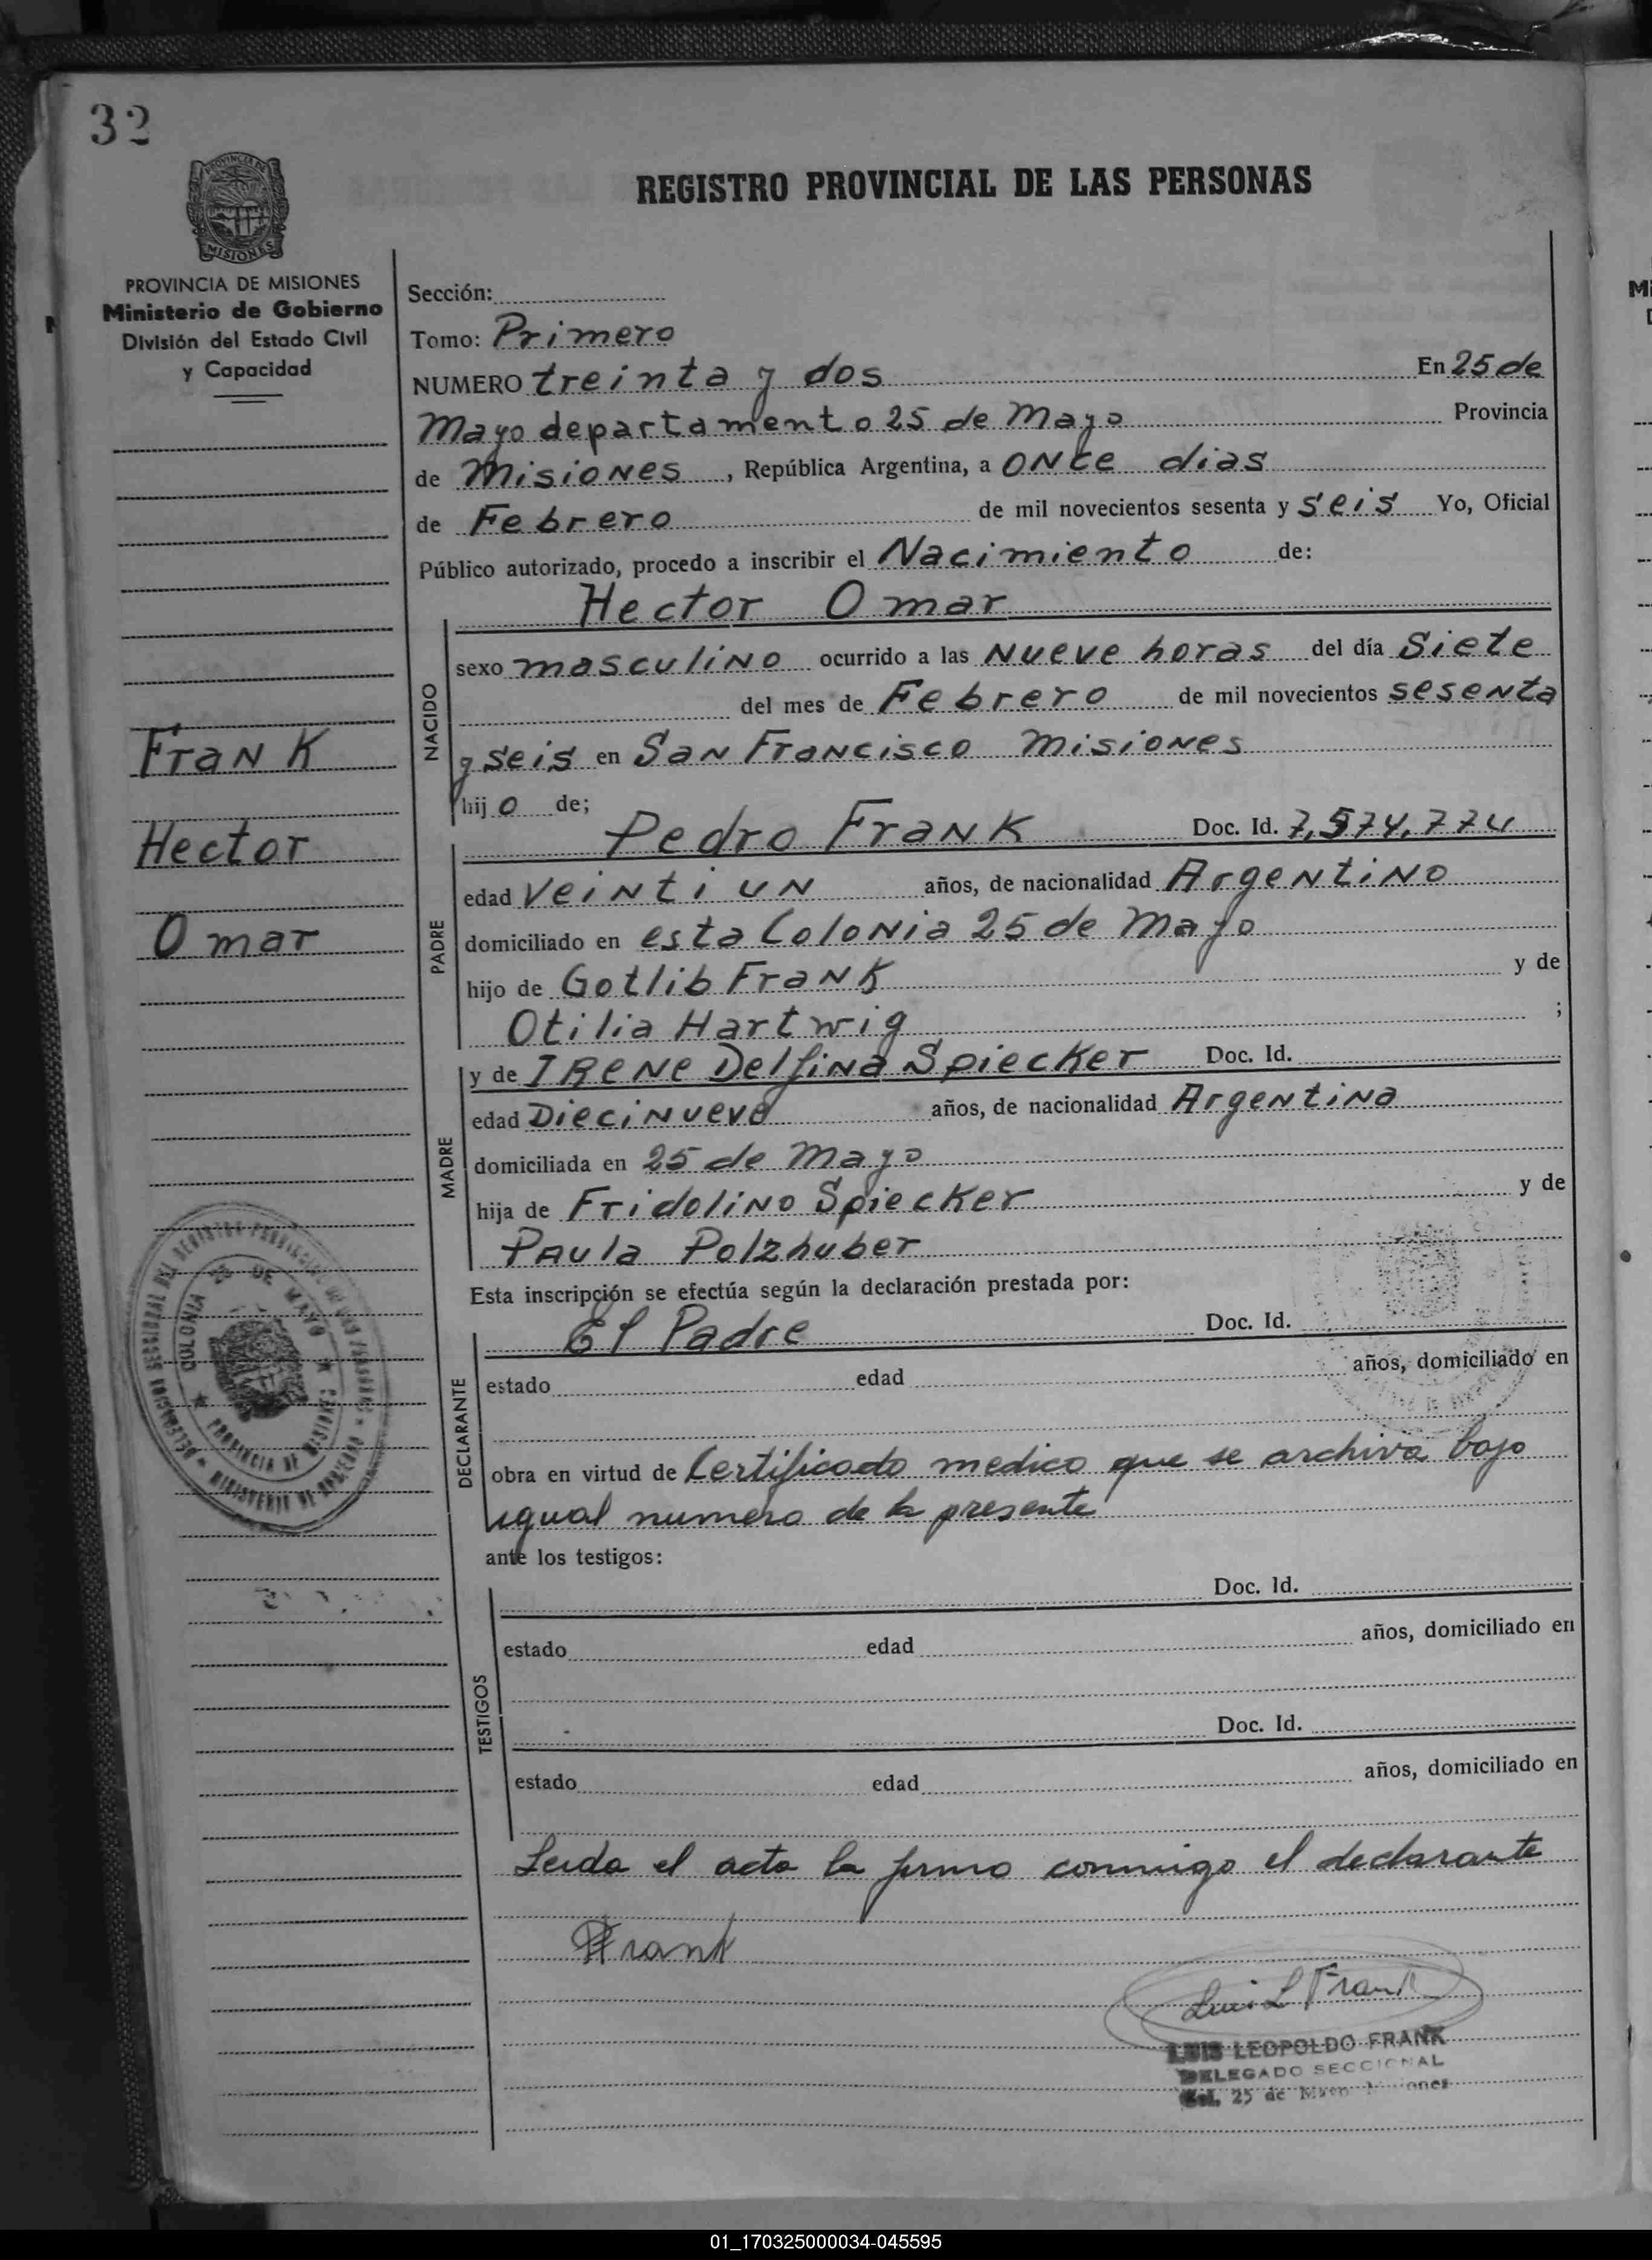 32
PROVINCIA DE
MISIONES
REGISTRO PROVINCIAL DE LAS PERSONAS
PROVINCIA DE MISIONES
Ministerio de Gobierno
División del Estado Civil
y Capacidad
Sección:
Tomo: Primero
NUMERO treinta y dos En 25 de
Mayo departamento 25 de Mayo Provincia
de Misiones, República Argentina, a once dias
de Febrero de mil novecientos sesenta y seis Yo, Oficial
Público autorizado, procedo a inscribir el Nacimiento de:
Hector Omar
NACIDO
sexo masculino ocurrido a las nueve horas del día Siete
del mes de Febrero de mil novecientos sesenta
y seis en San Francisco Misiones
hijo de;
Frank
Hector
Omar
PADRE
Pedro Frank Doc. Id. 7,574,774
edad veinti un años, de nacionalidad Argentino
domiciliado en esta Colonia 25 de Mayo
hijo de Gotlib Frank y de
Otilia Hartwig ;
MADRE
y de IRENE Delfina Spiecker Doc. Id.
edad Diecinueve años, de nacionalidad Argentina
domiciliada en 25 de Mayo
hija de Fridolino Spiecker y de
Paula Polzhuber
Esta inscripción se efectúa según la declaración prestada por:
DECLARANTE
El Padre Doc. Id.
estado edad años, domiciliado en
obra en virtud de Certificado medico que se archiva bajo
igual numero de la presente
ante los testigos:
COLONIA 25 DE MAYO
PROVINCIA DE MISIONES
MINISTERIO DE GOBIERNO
TESTIGOS
Doc. Id.
estado edad años, domiciliado en
Doc. Id.
estado edad años, domiciliado en
Leida el acta la firma conmigo el declarante
PFrank
Luis L Frank
LUIS LEOPOLDO FRANK
DELEGADO SECCIONAL
Col. 25 de Mayo Misiones
01_170325000034-045595